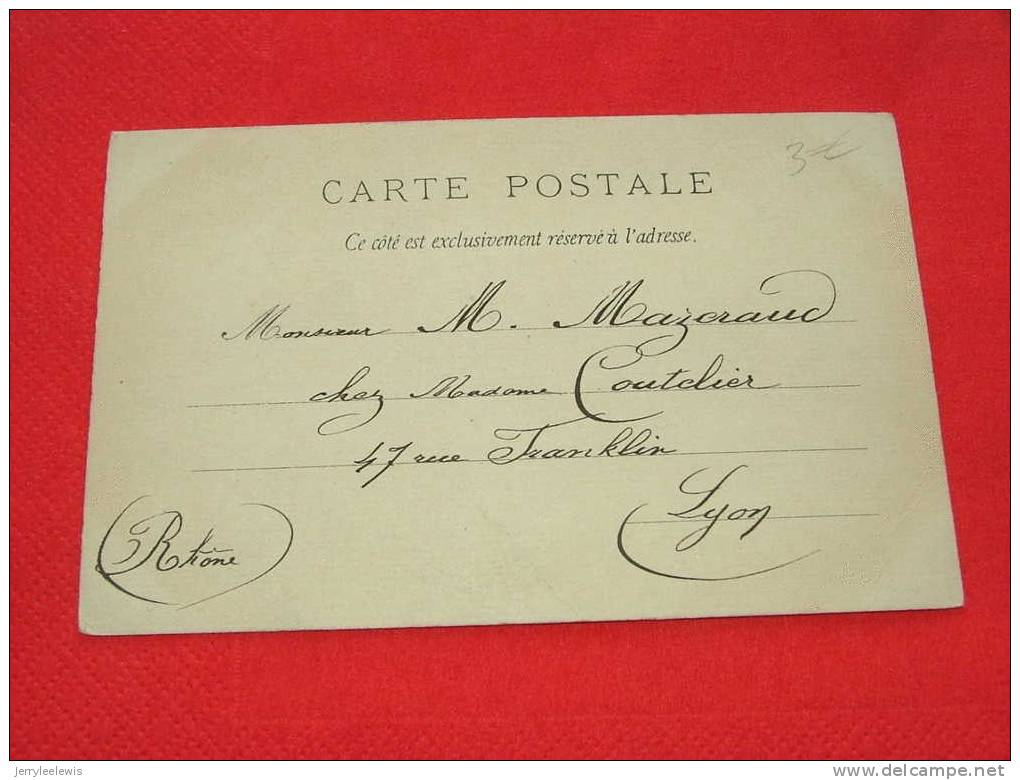 CARTE POSTALE
Ce côté est exclusivement réservé à l'adresse.
Monsieur M. Mazeraud
chez Madame Coutelier
47 rue Franklin
Lyon
(Rhône)
jerryleelewis
www.delcampe.net